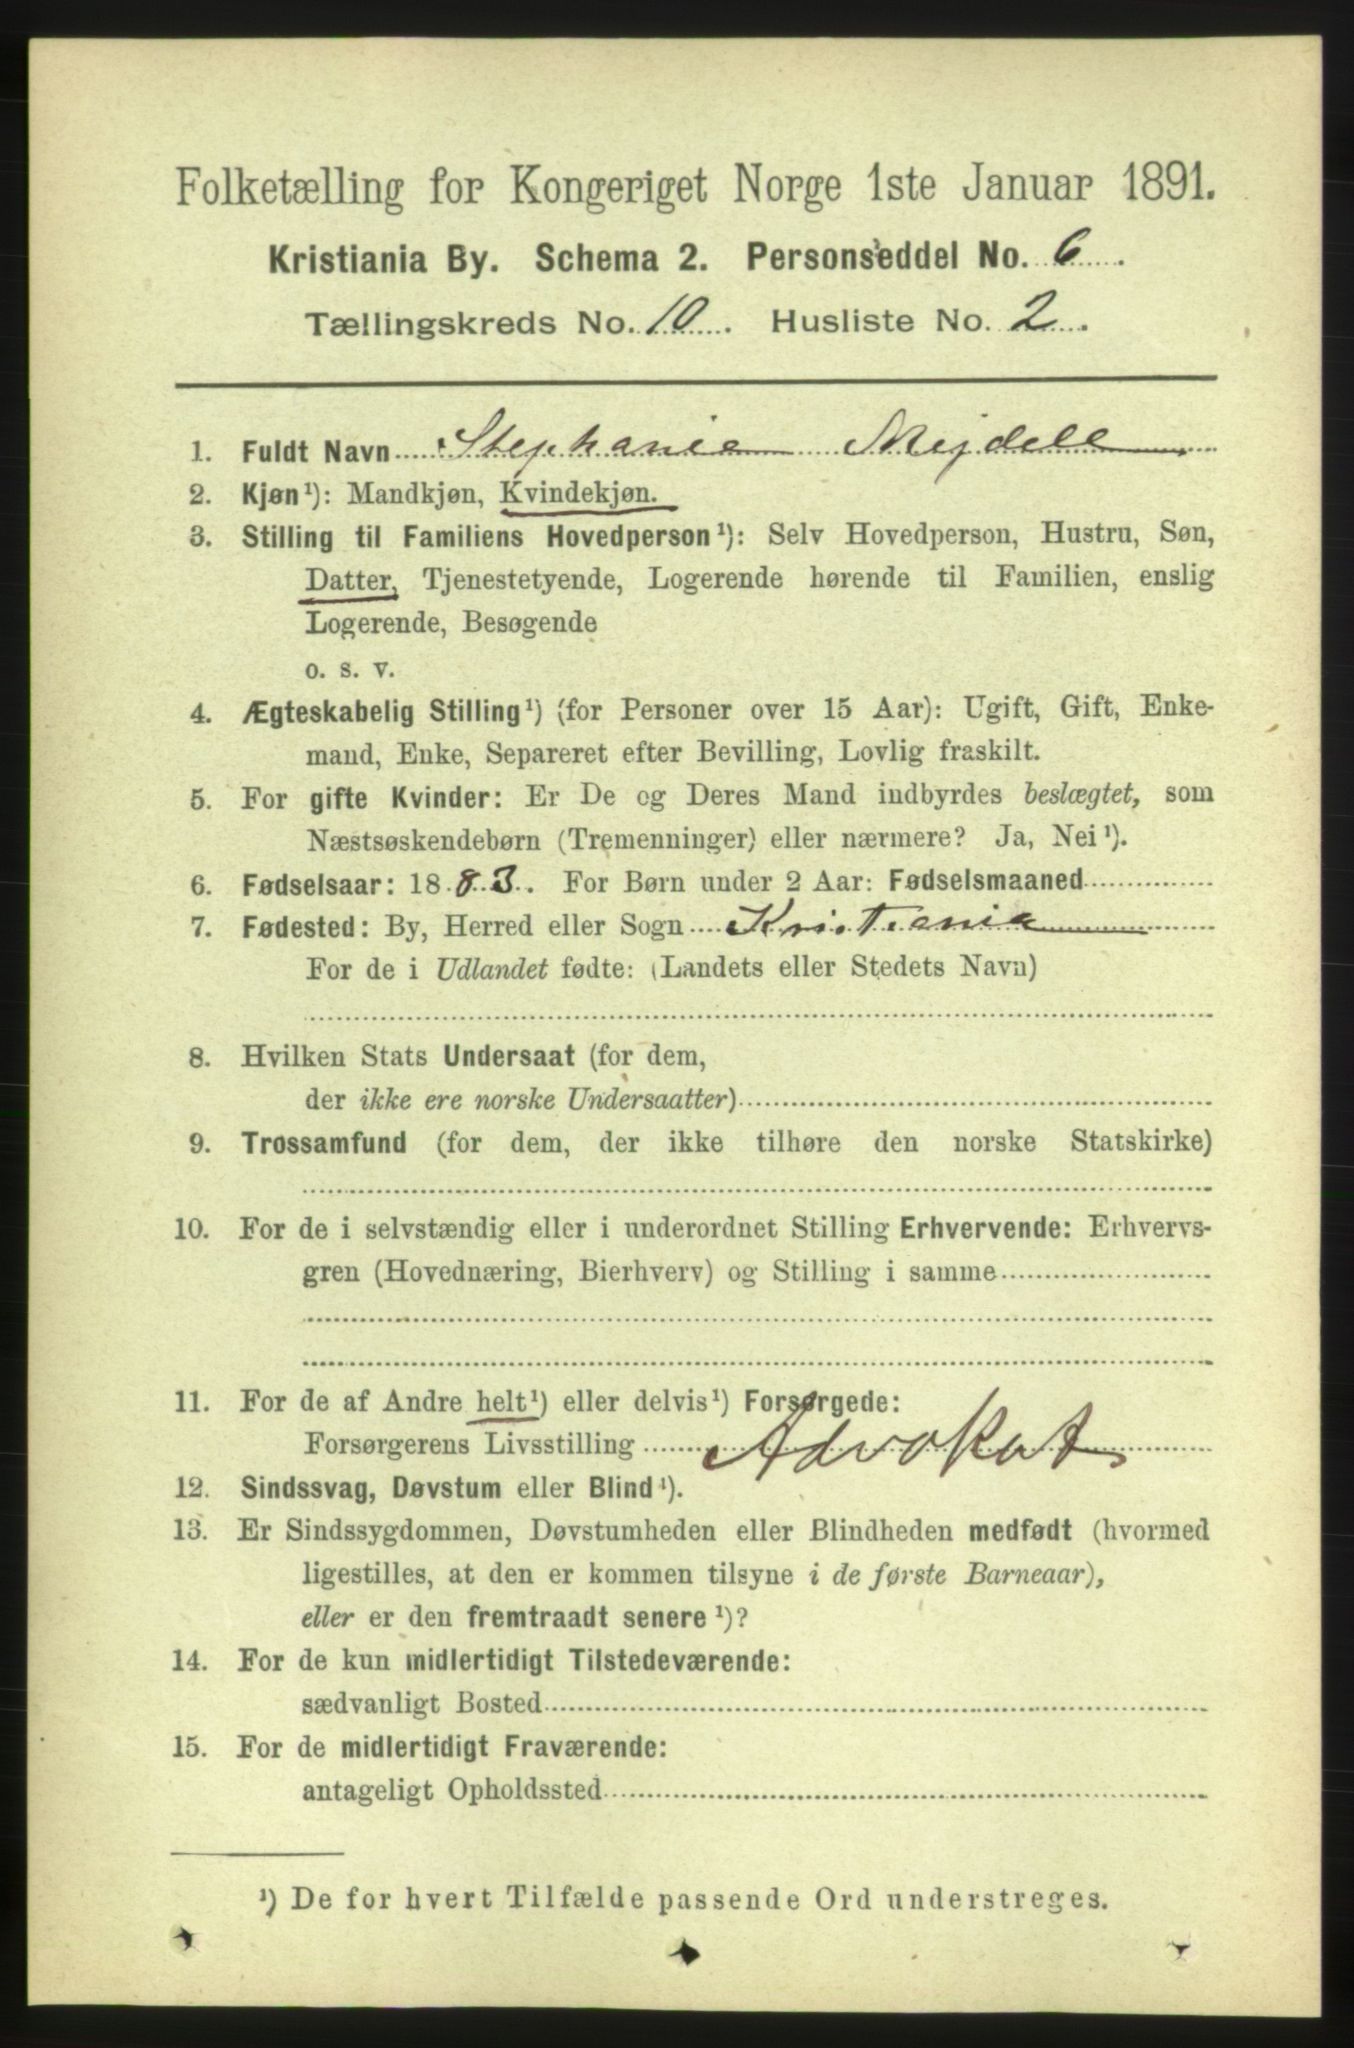 Folketælling for Kongeriget Norge 1ste Januar 1891.
Kristiania By. Schema 2. Personseddel No. 6.
Tællingskreds No. 10. Husliste No. 2.
1. Fuldt Navn Stephanie Mejdell
2. Kjøn¹): Mandkjøn, Kvindekjøn.
3. Stilling til Familiens Hovedperson¹): Selv Hovedperson, Hustru, Søn,
Datter, Tjenestetyende, Logerende hørende til Familien, enslig
Logerende, Besøgende
o. s. v.
4. Ægteskabelig Stilling¹) (for Personer over 15 Aar): Ugift, Gift, Enke-
mand, Enke, Separeret efter Bevilling, Lovlig fraskilt.
5. For gifte Kvinder: Er De og Deres Mand indbyrdes beslægtet, som
Næstsøskendebørn (Tremenninger) eller nærmere? Ja, Nei¹).
6. Fødselsaar: 1883. For Børn under 2 Aar: Fødselsmaaned
7. Fødested: By, Herred eller Sogn Kristiania
For de i Udlandet fødte: (Landets eller Stedets Navn)
8. Hvilken Stats Undersaat (for dem,
der ikke ere norske Undersaatter)
9. Trossamfund (for dem, der ikke tilhøre den norske Statskirke)
10. For de i selvstændig eller i underordnet Stilling Erhvervende: Erhvervs-
gren (Hovednæring, Bierhverv) og Stilling i samme
11. For de af Andre helt¹) eller delvis¹) Forsørgede:
Forsørgerens Livsstilling Advokat
12. Sindssvag, Døvstum eller Blind¹).
13. Er Sindssygdommen, Døvstumheden eller Blindheden medfødt (hvormed
ligestilles, at den er kommen tilsyne i de første Barneaar),
eller er den fremtraadt senere¹)?
14. For de kun midlertidigt Tilstedeværende:
sædvanligt Bosted
15. For de midlertidigt Fraværende:
antageligt Opholdssted
¹) De for hvert Tilfælde passende Ord understreges.